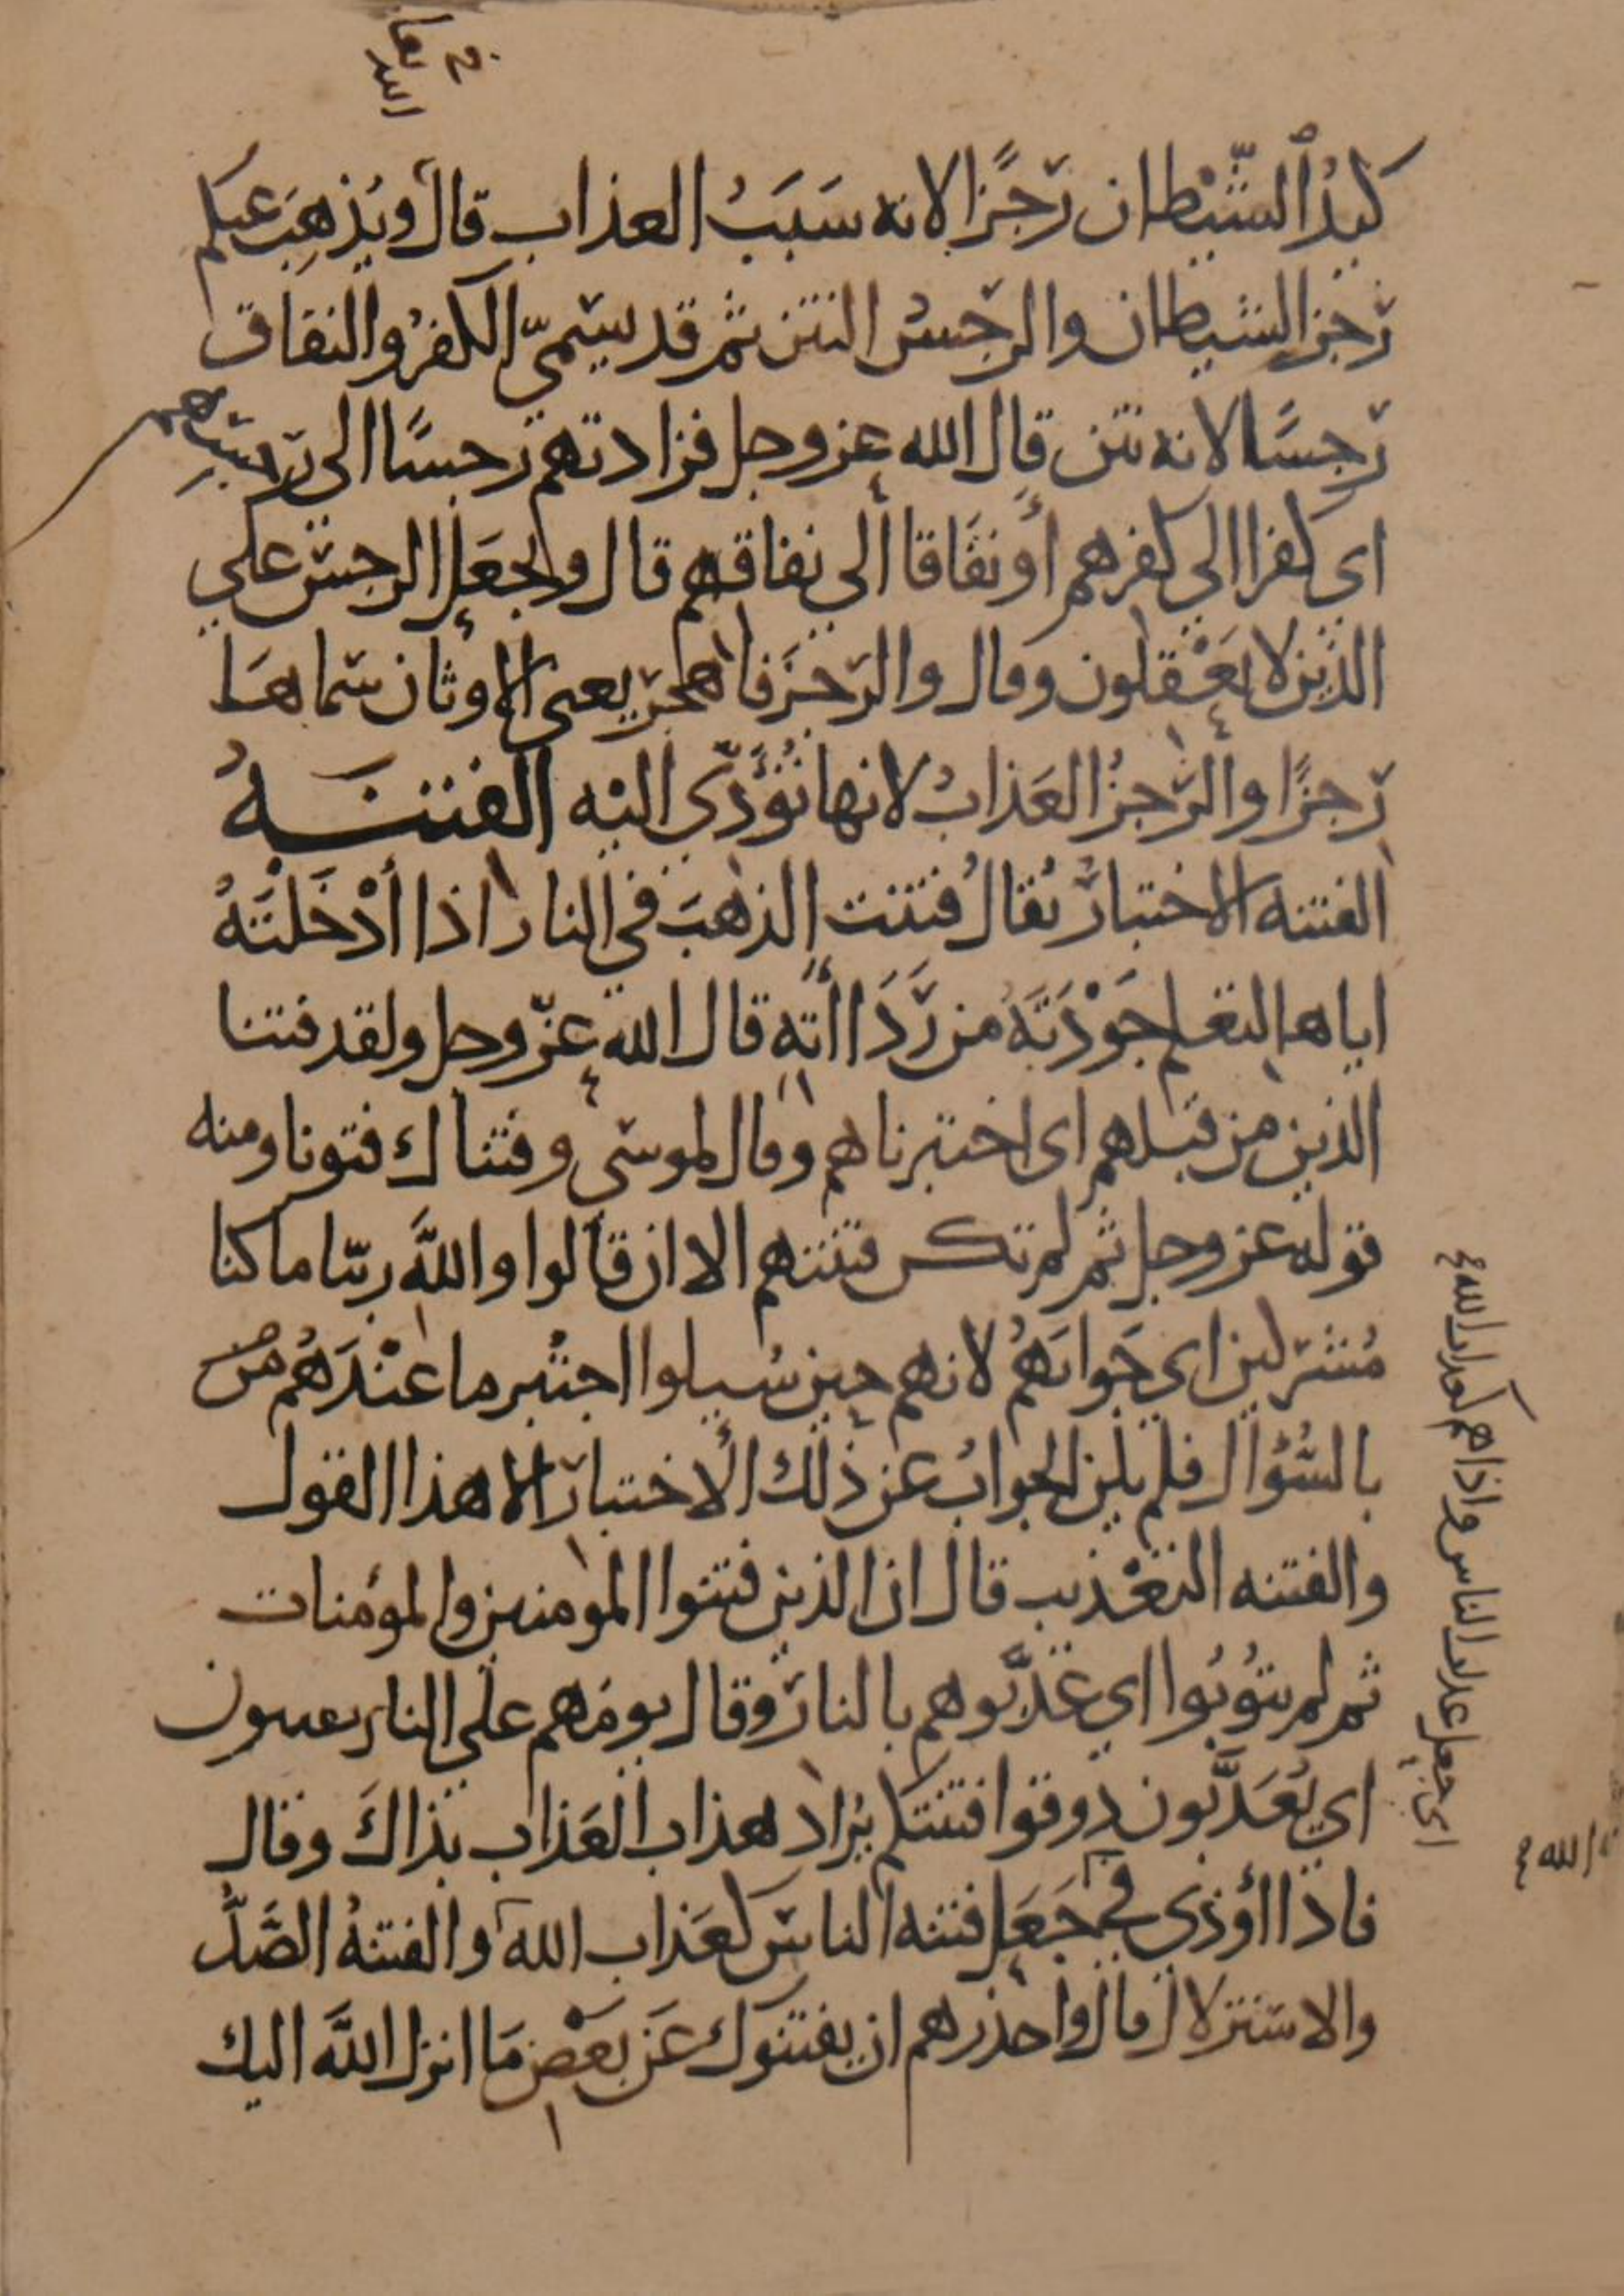 كيدُ الشّيْطان رجْزًا لانه سَبَبُ العذاب قال ويُذهِبَ عنكم
رجز الشيطان والرجس النتن ثم قد يسمّي الكفرُ والنفاق
رجسًا لانه نتن قال الله عز وجل فزادتهم رجسًا الى رجسهم
اى كفرا الي كفرهم أو نفاقا الي نفاقهم قال ويجعَل الرجس علي
الذين لا يعْقلون وقال والرجزَ فاهجر يعنى الاوثان سماها
رجزًا والرجزُ العَذابُ لانها تُؤَدّي اليْه الفتنــة
الفتنه الاختبارُ يُقالُ فتنت الذهبَ في النار اذا أدْخَلتَهُ
اياها لتعلم جَوْدَتَهُ من رَدَاأته قال الله عزّ وجل ولقد فتنا
الذين من قبلهم اى اختبرناهم وقال لموسى وفتناك فتونا ومنه
قوله عز وجل ثم لم تكن فتنتهم الا ان قالوا والله ربّنا ما كنا
مُشركين اي جَوابَهُمُ لانهم حين سُيلوا اختُبر ما عنْدَهُم
بالسُّؤال فلم يكن الجوابُ عن ذلك الاختبار الا هذا القول
والفتنه التعْذيب قال ان الذين فتنوا المومنين والمؤمنات
ثم لم يتُوبُوا اي عَذّبوهم بالنار وقال يومَ هم على النار يفتنون
اي يُعَذَّبون ذوقوا فتنتكم يُراد هذاب العَذاب بذاكَ وقال
فاذا أوذي في جَعَل فتنه الناس كعَذاب الله والفتنةُ الصَّدُّ
والاستنزلال قال واحذرهم ان يفتنوك عَن بعْض مَا انزل اللّه اليك
الله